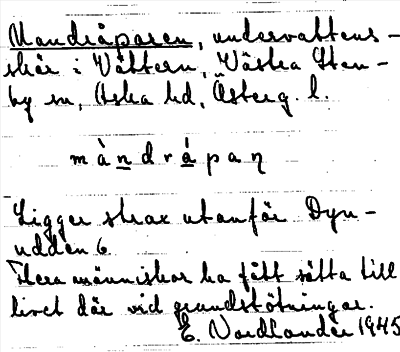 Mandråparen, undervattens-
skär i Vättern, Västra Sten-
by sn, Aska hd, Österg. l.
màndråpaṇ
Ligger strax utanför Dyn-
udden 6
Flera människor ha fått sätta till
livet där vid grundstötningar.
E. Nordlander 1945